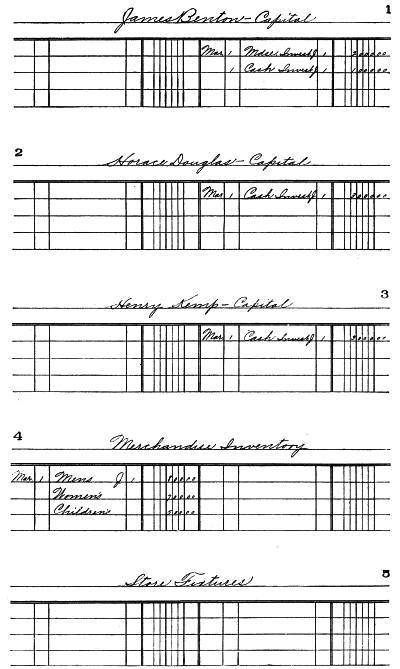 James Benton - Capital 1
Mar 1 Mdse Invest J 1 200000
1 Cash Invest J 1 100000
2
Horace Douglas - Capital
Mar 1 Cash Invest J 1
3
Henry Kemp - Capital
Mar 1 Cash Invest J 1
4
Merchandise Inventory
Mar 1 Mens J 1
Women's
Children
Store Fixtures 5